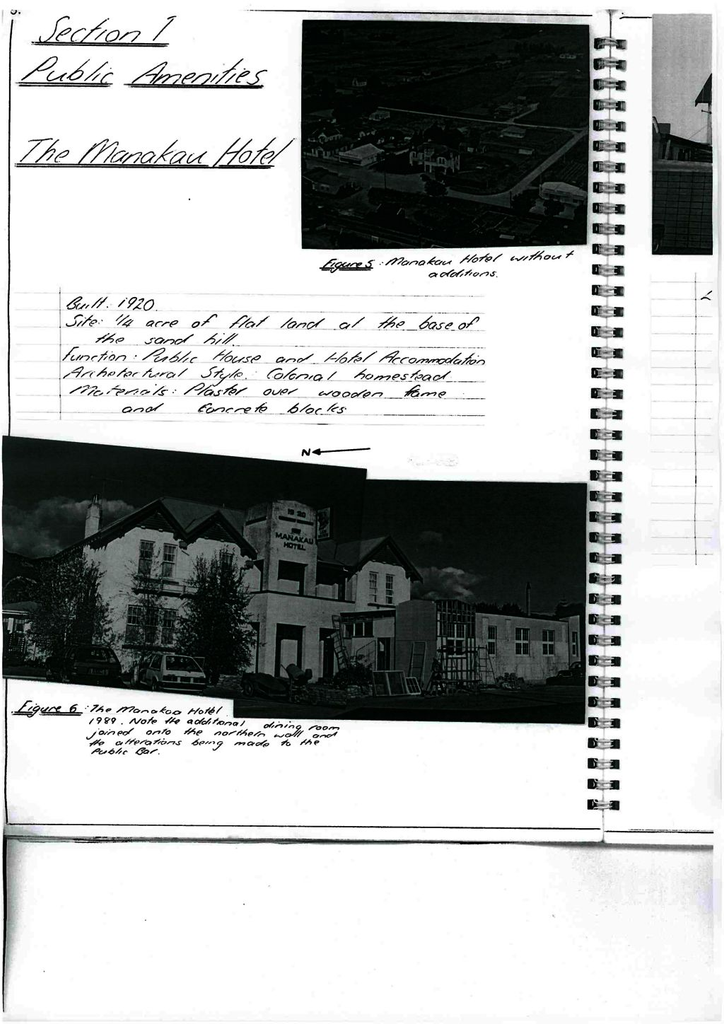 Section 1
Public Amenities
The Manakau Hotel
Figure 5 : Manakau Hotel without
additions.
Built: 1920
Site: 1/4 acre of flat land at the base of
the sand hill.
Function : Public House and Hotel Accommodation
Archetectural Style: Colonial homestead
Materials : Plaster over wooden fame
and concrete blocks
N
1920
MANAKAU
HOTEL
Figure 6 : The Manakoa Hotel
1989. Note the additional dining room
joined onto the northern wall and
the alterations being made to the
Public Bar.